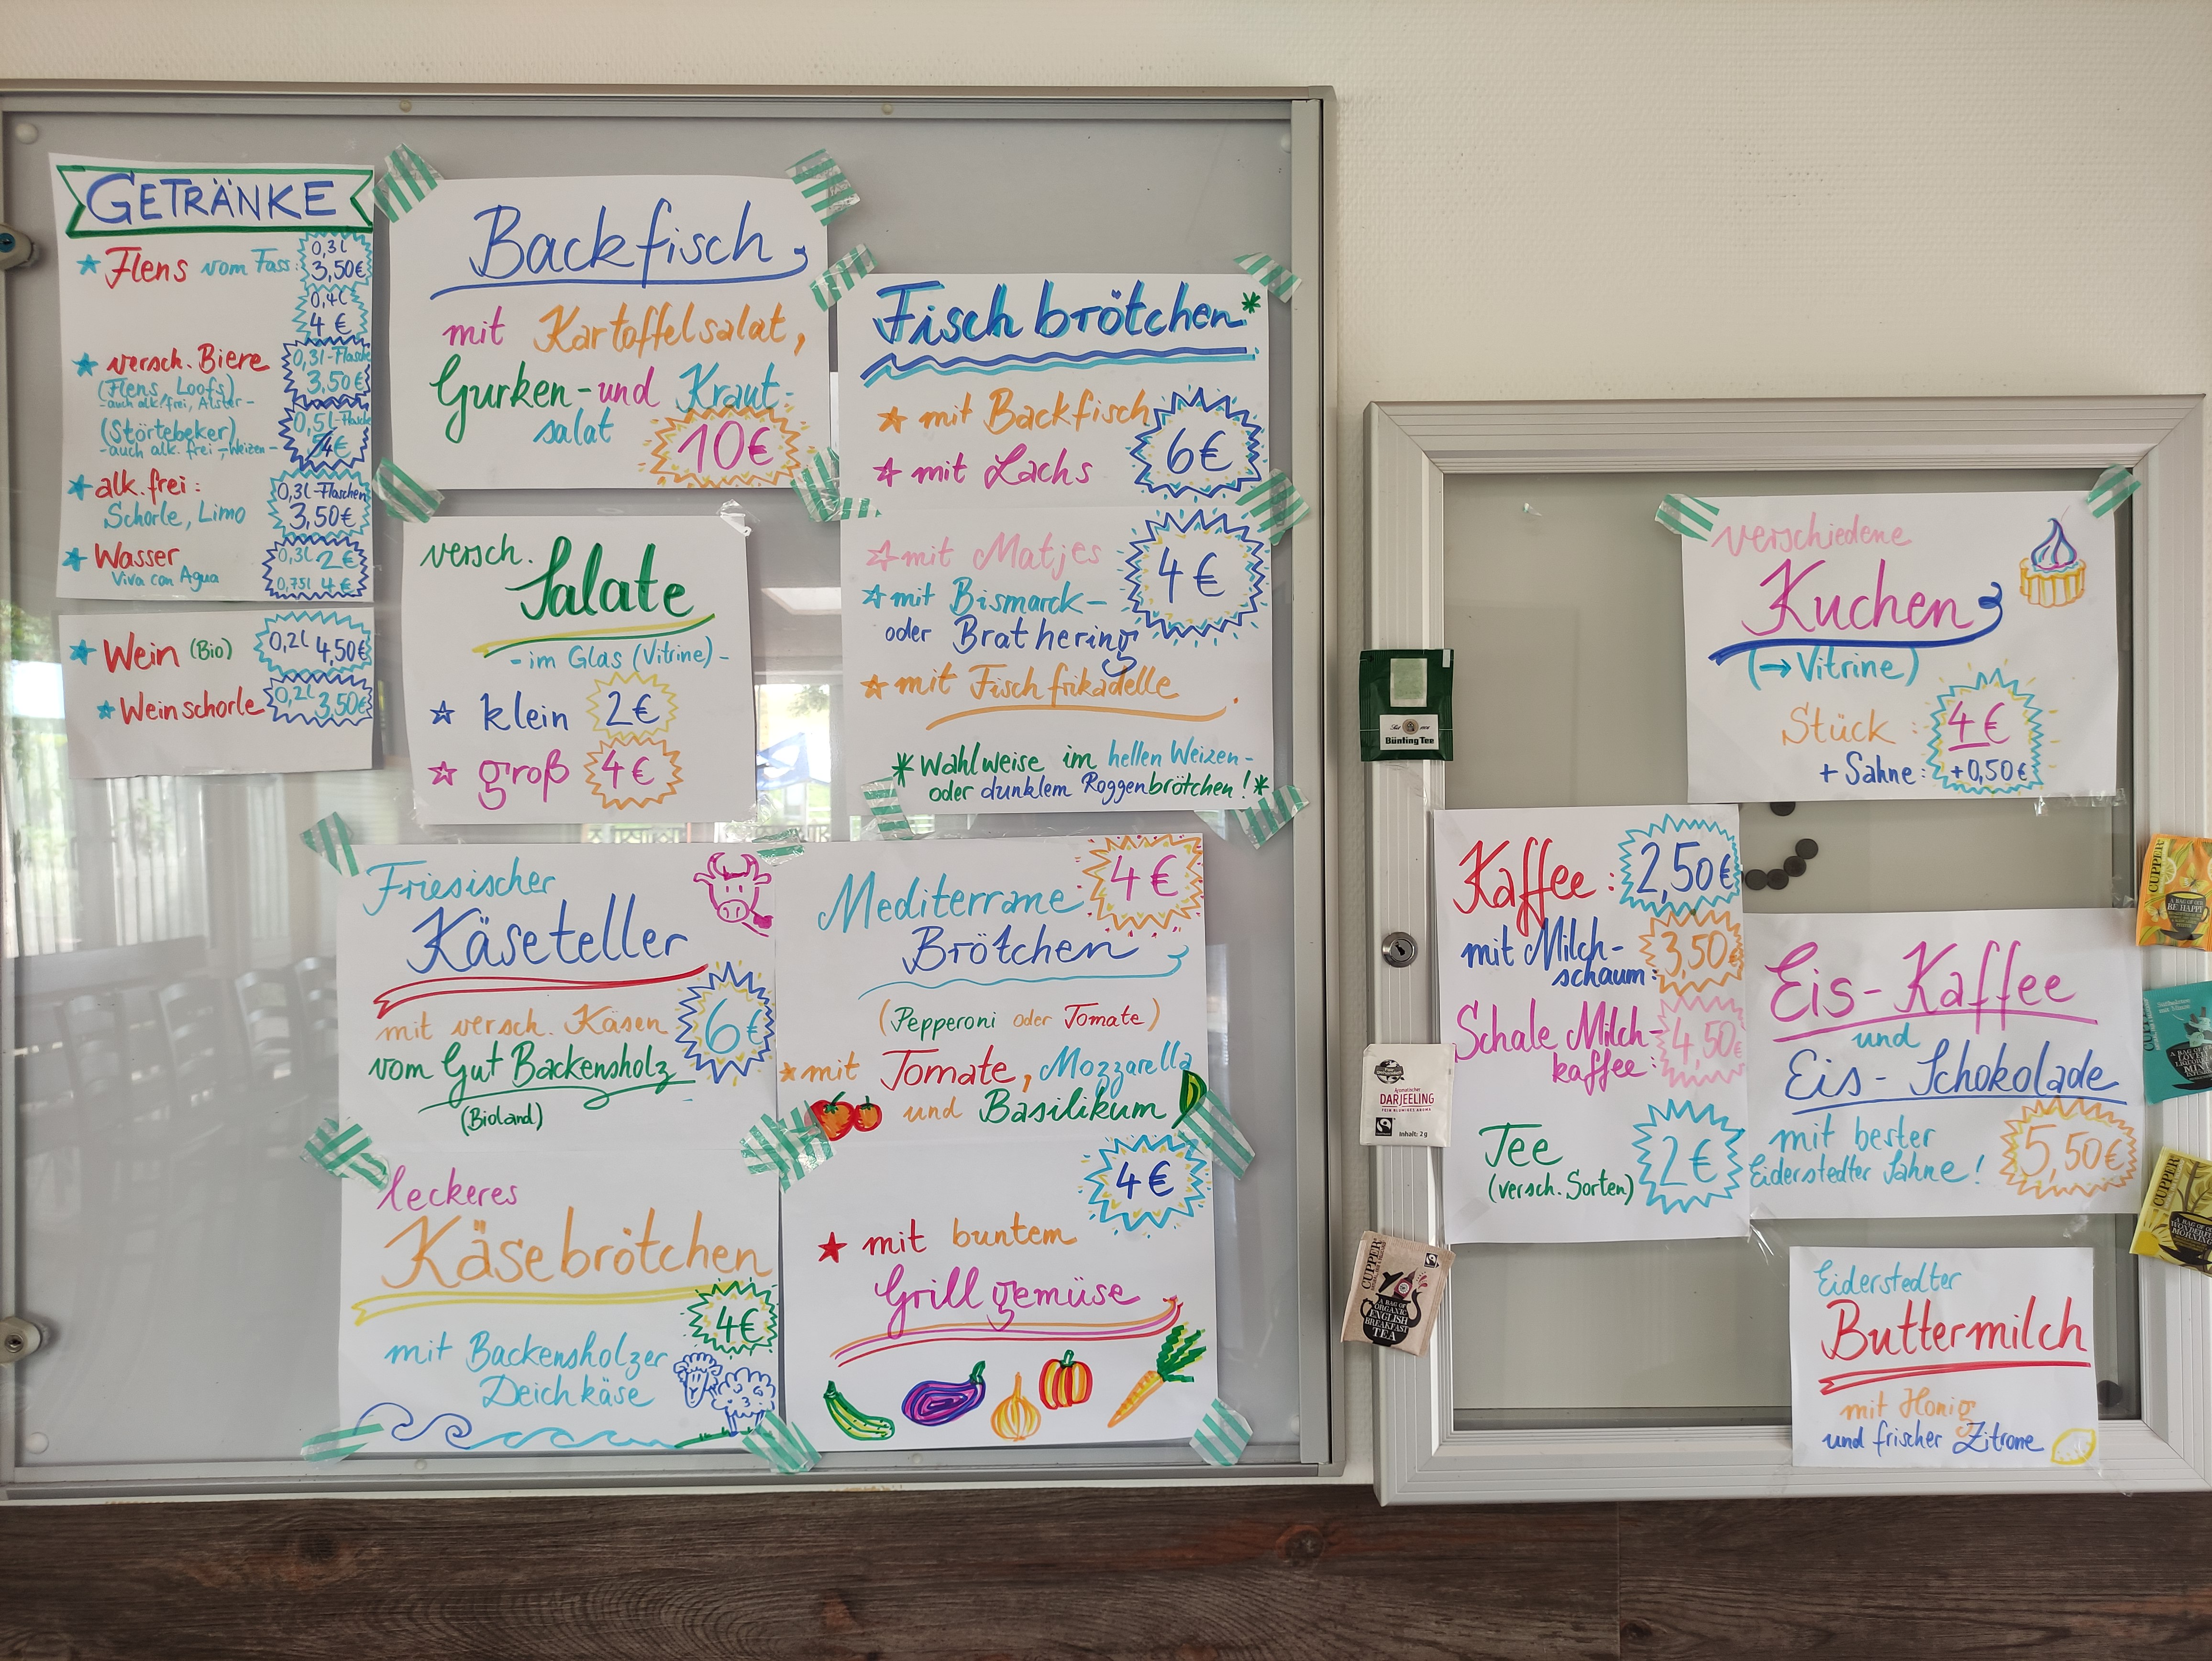 GETRÄNKE
Flens vom Fass: 0,3l 3,50€
0,4l 4 €
versch. Biere 0,3l-Flasche 3,50€
(Flens, Loofs)
-auch alk. frei, Alster-
(Störtebeker) 0,5l-Flasche
-auch alk. frei, -Weizen-
alk. frei: 0,3l-Flaschen
Schorle, Limo 3,50€
Wasser 0,3l 2 €
Viva con Agua 0,75l 4 €
Wein (Bio) 0,2l 4,50€
Weinschorle 0,2l 3,50€
Backfisch
mit Kartoffelsalat,
Gurken- und Kraut-
salat 10€
versch.
Salate
- im Glas (Vitrine) -
klein 2€
groß 4€
Fischbrötchen*
mit Backfisch
mit Lachs 6€
mit Matjes 4€
mit Bismarck-
oder Brathering
mit Fischfrikadelle
* Wahlweise im hellen Weizen-
oder dunklem Roggenbrötchen! *
Friesischer
Käseteller
mit versch. Käsen 6€
vom Gut Backensholz
(Bioland)
leckeres
Käsebrötchen
4€
mit Backensholzer
Deichkäse
Mediterrane 4€
Brötchen
(Pepperoni oder Tomate)
mit Tomate, Mozzarella
und Basilikum
4€
mit buntem
Grillgemüse
verschiedene
Kuchen
(→ Vitrine)
Stück: 4 €
+ Sahne: +0,50€
Kaffee: 2,50€
mit Milch-
schaum: 3,50€
Schale Milch-
kaffee: 4,50€
Tee 2€
(versch. Sorten)
Eis-Kaffee
und
Eis-Schokolade
mit bester
Eiderstedter Sahne! 5,50€
Eiderstedter
Buttermilch
mit Honig
und frischer Zitrone
Bünting Tee
DARJEELING
Inhalt: 2 g
CUPPER
A BAG OF
ORGANIC
ENGLISH
BREAKFAST
TEA
CUPPER
BE HAPPY
CUPPER